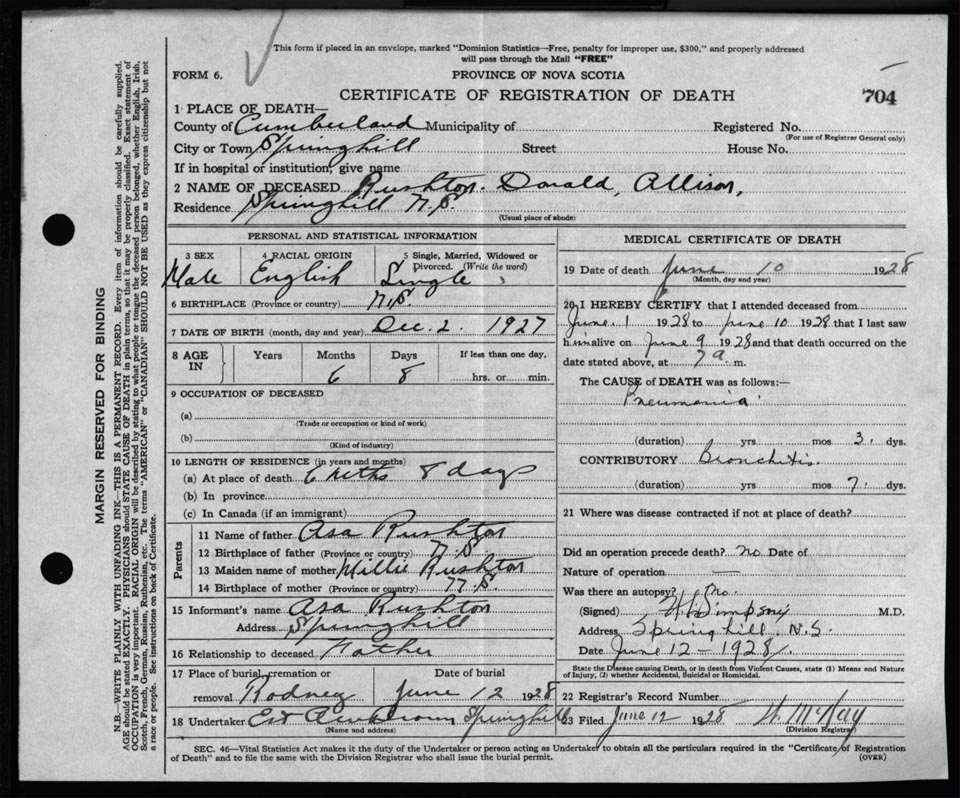 This form if placed in an envelope, marked "Dominion Statistics—Free, penalty for improper use, $300," and properly addressed
will pass through the Mail "FREE"
FORM 6.
PROVINCE OF NOVA SCOTIA
CERTIFICATE OF REGISTRATION OF DEATH
704
1 PLACE OF DEATH—
County of Cumberland Municipality of Registered No.
(For use of Registrar General only)
City or Town Springhill Street House No.
If in hospital or institution, give name
2 NAME OF DECEASED Rushton, Donald, Allison,
Residence Springhill N.S.
(Usual place of abode)
PERSONAL AND STATISTICAL INFORMATION
3 SEX 4 RACIAL ORIGIN 5 Single, Married, Widowed or
Divorced. (Write the word)
Male English Single
6 BIRTHPLACE (Province or country) N.S.
7 DATE OF BIRTH (month, day and year) Dec. 2. 1927
8 AGE IN Years Months Days If less than one day,
6 8 hrs. or min.
9 OCCUPATION OF DECEASED
(a)
(Trade or occupation or kind of work)
(b)
(Kind of industry)
10 LENGTH OF RESIDENCE (in years and months)
(a) At place of death 6 mths 8 days
(b) In province
(c) In Canada (if an immigrant)
Parents
11 Name of father Asa Rushton
12 Birthplace of father (Province or country) N.S.
13 Maiden name of mother Millie Rushton
14 Birthplace of mother (Province or country) N.S.
15 Informant's name Asa Rushton
Address Springhill
16 Relationship to deceased Father
17 Place of burial, cremation or Date of burial
removal Rodney June 12 1928
18 Undertaker Springhill
(Name and address)
MEDICAL CERTIFICATE OF DEATH
19 Date of death June 10 1928
(Month, day and year)
20 I HEREBY CERTIFY that I attended deceased from
June 1 1928 to June 10 1928 that I last saw
him alive on June 9 1928 and that death occurred on the
date stated above, at 7 a. m.
The CAUSE of DEATH was as follows:—
Pneumonia
(duration) yrs mos 3. dys.
CONTRIBUTORY Bronchitis.
(duration) yrs mos 7. dys.
21 Where was disease contracted if not at place of death?
Did an operation precede death? no Date of
Nature of operation —
Was there an autopsy? no.
(Signed) Simpson M.D.
Address Springhill. N.S.
Date June 12 - 1928.
State the Disease causing Death, or in death from Violent Causes, state (1) Means and Nature
of Injury, (2) whether Accidental, Suicidal or Homicidal.
22 Registrar's Record Number
23 Filed June 12 1928 H. McKay
(Division Registrar)
SEC. 46—Vital Statistics Act makes it the duty of the Undertaker or person acting as Undertaker to obtain all the particulars required in the "Certificate of Registration
of Death" and to file the same with the Division Registrar who shall issue the burial permit.
(OVER)
MARGIN RESERVED FOR BINDING
N.B.—WRITE PLAINLY WITH UNFADING INK—THIS IS A PERMANENT RECORD. Every item of information should be carefully supplied.
AGE should be stated EXACTLY. PHYSICIANS should STATE CAUSE OF DEATH in plain terms, so that it may be properly classified. Exact statement of
OCCUPATION is very important. RACIAL ORIGIN will be described by stating to what people or tongue the deceased person belonged, whether English, Irish,
Scotch, French, German, Russian, Ruthenian, etc. The terms "AMERICAN" or "CANADIAN" SHOULD NOT BE USED as they express citizenship but not
a race or people. See instructions on back of Certificate.